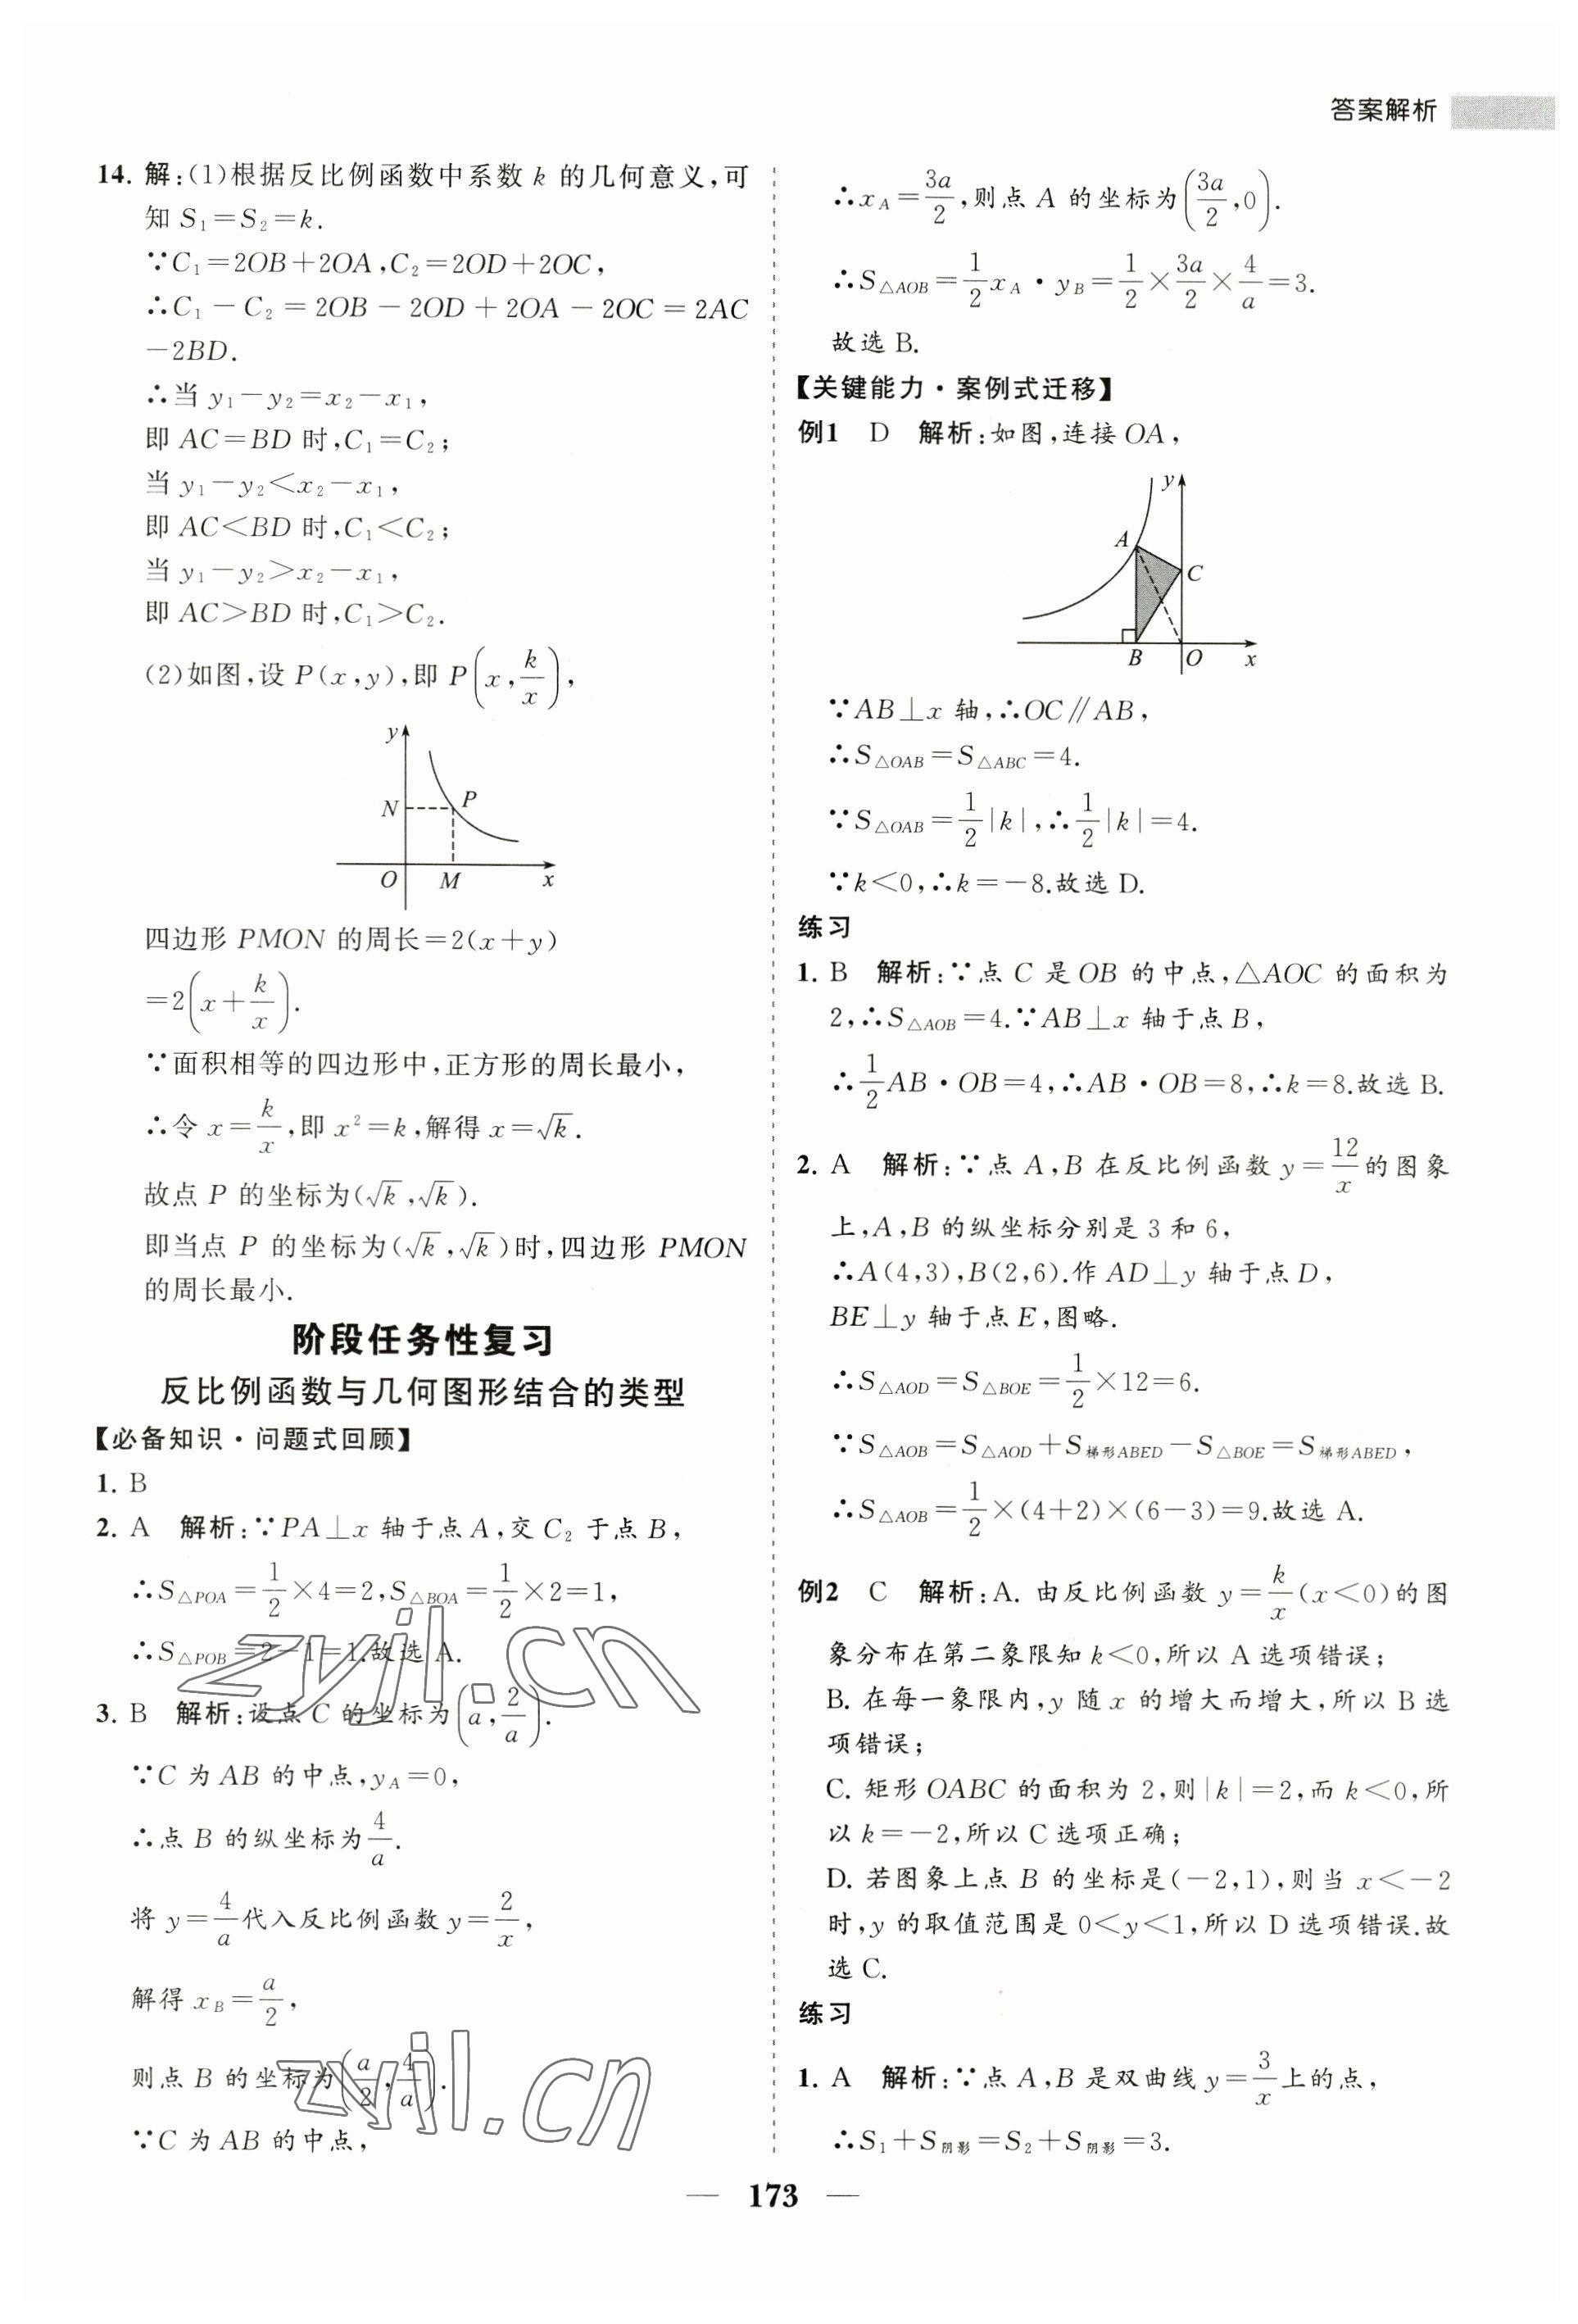 答案解析
14. 解:(1)根据反比例函数中系数 k 的几何意义,可
知 S₁=S₂=k.
∵C₁=2OB+2OA,C₂=2OD+2OC,
∴C₁-C₂=2OB-2OD+2OA-2OC=2AC
-2BD.
∴当 y₁-y₂=x₂-x₁,
即 AC=BD 时,C₁=C₂;
当 y₁-y₂<x₂-x₁,
即 AC<BD 时,C₁<C₂;
当 y₁-y₂>x₂-x₁,
即 AC>BD 时,C₁>C₂.
(2)如图,设 P(x,y),即 P(x,k/x),
y
N
P
O
M
x
四边形 PMON 的周长=2(x+y)
=2(x+k/x).
∵面积相等的四边形中,正方形的周长最小,
∴令 x=k/x,即 x²=k,解得 x=√k.
故点 P 的坐标为(√k,√k).
即当点 P 的坐标为(√k,√k)时,四边形 PMON
的周长最小.
阶段任务性复习
反比例函数与几何图形结合的类型
【必备知识·问题式回顾】
1. B
2. A 解析:∵PA⊥x 轴于点 A,交 C₂ 于点 B,
∴S△POA=1/2×4=2,S△BOA=1/2×2=1,
∴S△POB=2-1=1.故选 A.
3. B 解析:设点 C 的坐标为(a,2/a).
∵C 为 AB 的中点,yA=0,
∴点 B 的纵坐标为4/a.
将 y=4/a代入反比例函数 y=2/x,
解得 xB=a/2,
则点 B 的坐标为(a/2,4/a).
∵C 为 AB 的中点,
∴xA=3a/2,则点 A 的坐标为(3a/2,0).
∴S△AOB=1/2xA·yB=1/2×3a/2×4/a=3.
故选 B.
【关键能力·案例式迁移】
例1 D 解析:如图,连接 OA,
y
A
C
B
O
x
∵AB⊥x 轴,∴OC∥AB,
∴S△OAB=S△ABC=4.
∵S△OAB=1/2|k|,∴1/2|k|=4.
∵k<0,∴k=-8.故选 D.
练习
1. B 解析:∵点 C 是 OB 的中点,△AOC 的面积为
2,∴S△AOB=4.∵AB⊥x 轴于点 B,
∴1/2AB·OB=4,∴AB·OB=8,∴k=8.故选 B.
2. A 解析:∵点 A,B 在反比例函数 y=12/x的图象
上,A,B 的纵坐标分别是 3 和 6,
∴A(4,3),B(2,6).作 AD⊥y 轴于点 D,
BE⊥y 轴于点 E,图略.
∴S△AOD=S△BOE=1/2×12=6.
∵S△AOB=S△AOD+S梯形ABED-S△BOE=S梯形ABED,
∴S△AOB=1/2×(4+2)×(6-3)=9.故选 A.
例2 C 解析:A. 由反比例函数 y=k/x(x<0)的图
象分布在第二象限知 k<0,所以 A 选项错误;
B. 在每一象限内,y 随 x 的增大而增大,所以 B 选
项错误;
C. 矩形 OABC 的面积为 2,则|k|=2,而 k<0,所
以 k=-2,所以 C 选项正确;
D. 若图象上点 B 的坐标是(-2,1),则当 x<-2
时,y 的取值范围是 0<y<1,所以 D 选项错误.故
选 C.
练习
1. A 解析:∵点 A,B 是双曲线 y=3/x上的点,
∴S₁+S阴影=S₂+S阴影=3.
zyjl.cn
zyjl.cn
— 173 —